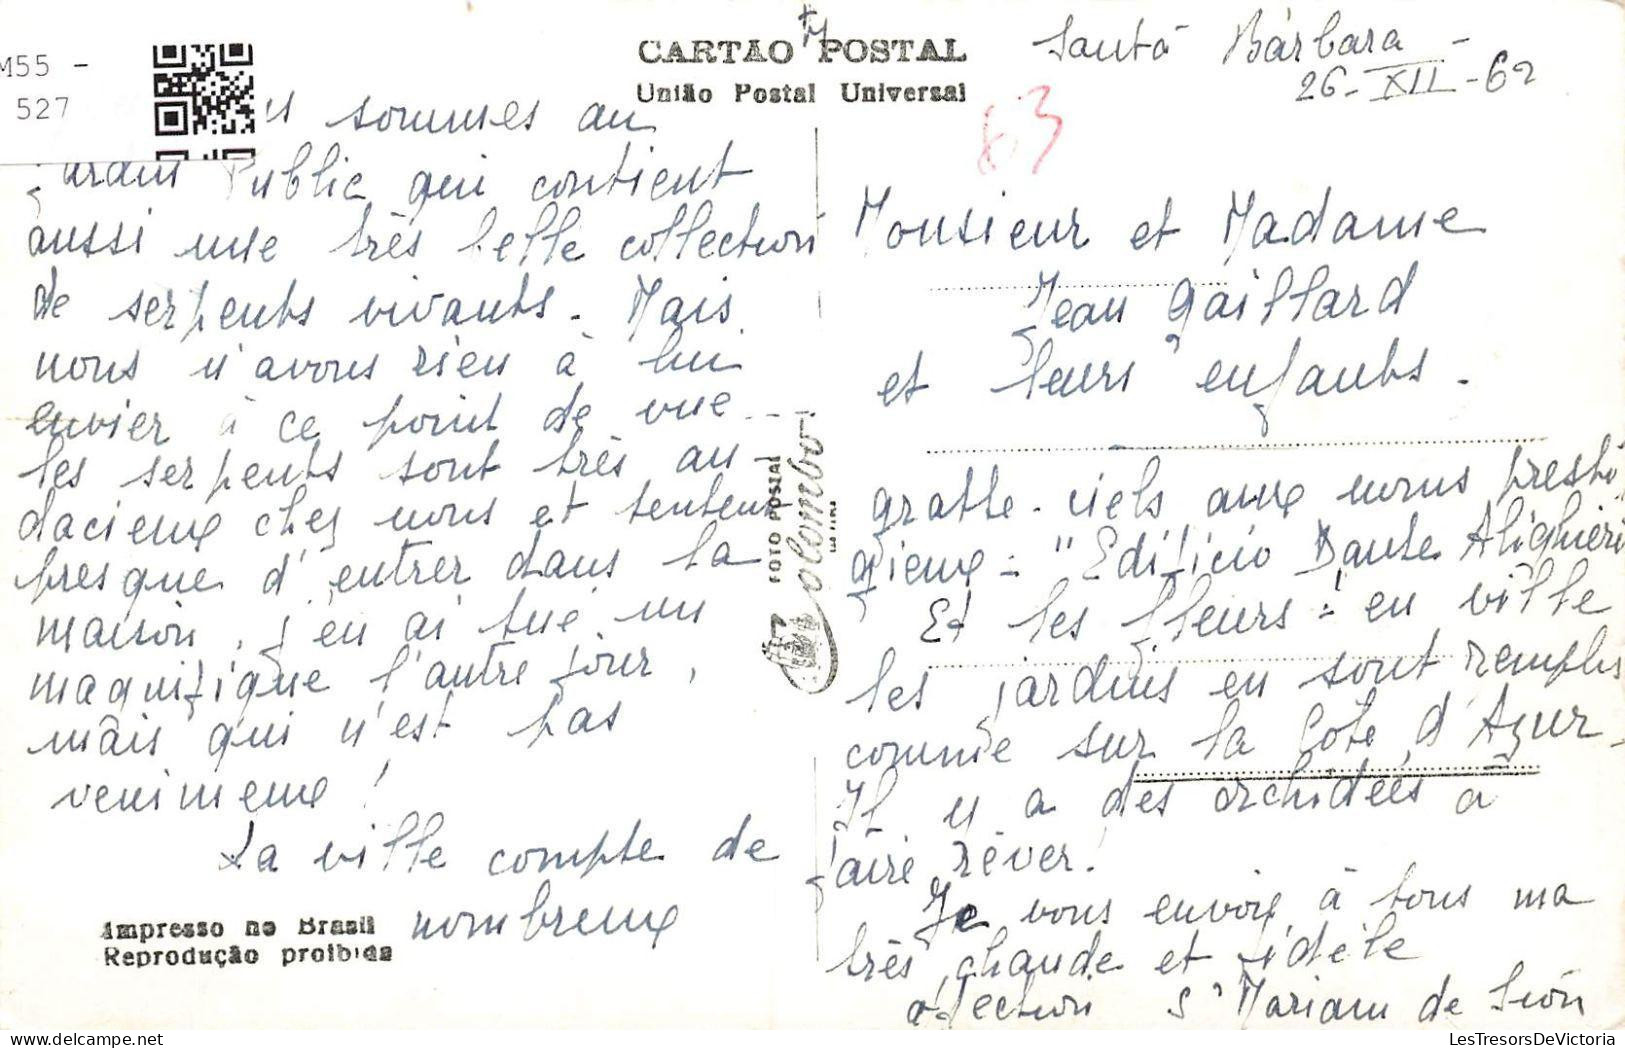 M55 -
527
CARTÃO POSTAL
União Postal Universal
Santa Bárbara -
26-XII-62
63
sommes au
jardin Public qui contient
aussi une très belle collection
de serpents vivants. Mais
nous n'avons rien à lui
envier à ce point de vue
les serpents sont très au-
dacieux chez nous et tentent
presque d'entrer dans la
maison, j'en ai tué un
magnifique l'autre jour,
mais qui n'est pas
venimeux !
La ville compte de
nombreux
Impresso no Brasil
Reprodução proibida
FOTO POSTAL
Colombo
Monsieur et Madame
Jean Gaillard
et leurs enfants.
gratte-ciels aux noms presti
gieux = "Edificio Dante Alighieri
Et les fleurs : en ville
les jardins en sont remplis
comme sur la Côte d'Azur.
Il y a des orchidées à
faire rêver!
Je vous envoie à tous ma
très chaude et fidèle
affection Sr Mariam de Sion
LesTresorsDeVictoria